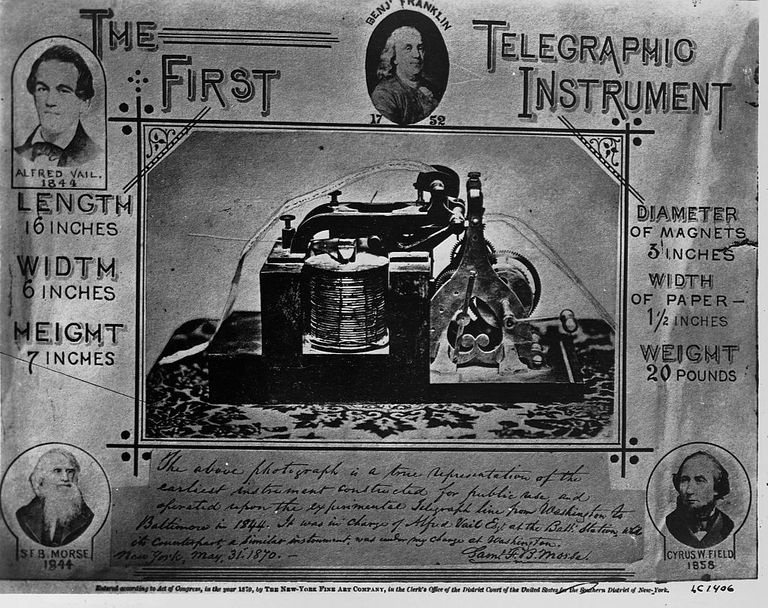 THE FIRST
BENJ. FRANKLIN
1752
TELEGRAPHIC INSTRUMENT
ALFRED VAIL.
1844
LENGTH
16 INCHES
WIDTH
6 INCHES
HEIGHT
7 INCHES
DIAMETER
OF MAGNETS
3 INCHES
WIDTH
OF PAPER—
1½ INCHES
WEIGHT
20 POUNDS
The above photograph is a true representation of the
earliest instrument constructed for public use and
operated upon the experimental Telegraph line from Washington to
Baltimore in 1844. It was in Charge of Alfred Vail Esq. at the Balt. Station, and
its Counterpart, a similar instrument, was under my charge at Washington.
New York, May, 31. 1870. — Saml. F. B. Morse.
S.F.B. MORSE
1844
CYRUS W. FIELD
1858
Entered according to Act of Congress, in the year 1870, by THE NEW-YORK FINE ART COMPANY, in the Clerk's Office of the District Court of the United States for the Southern District of New-York.
LC 1406